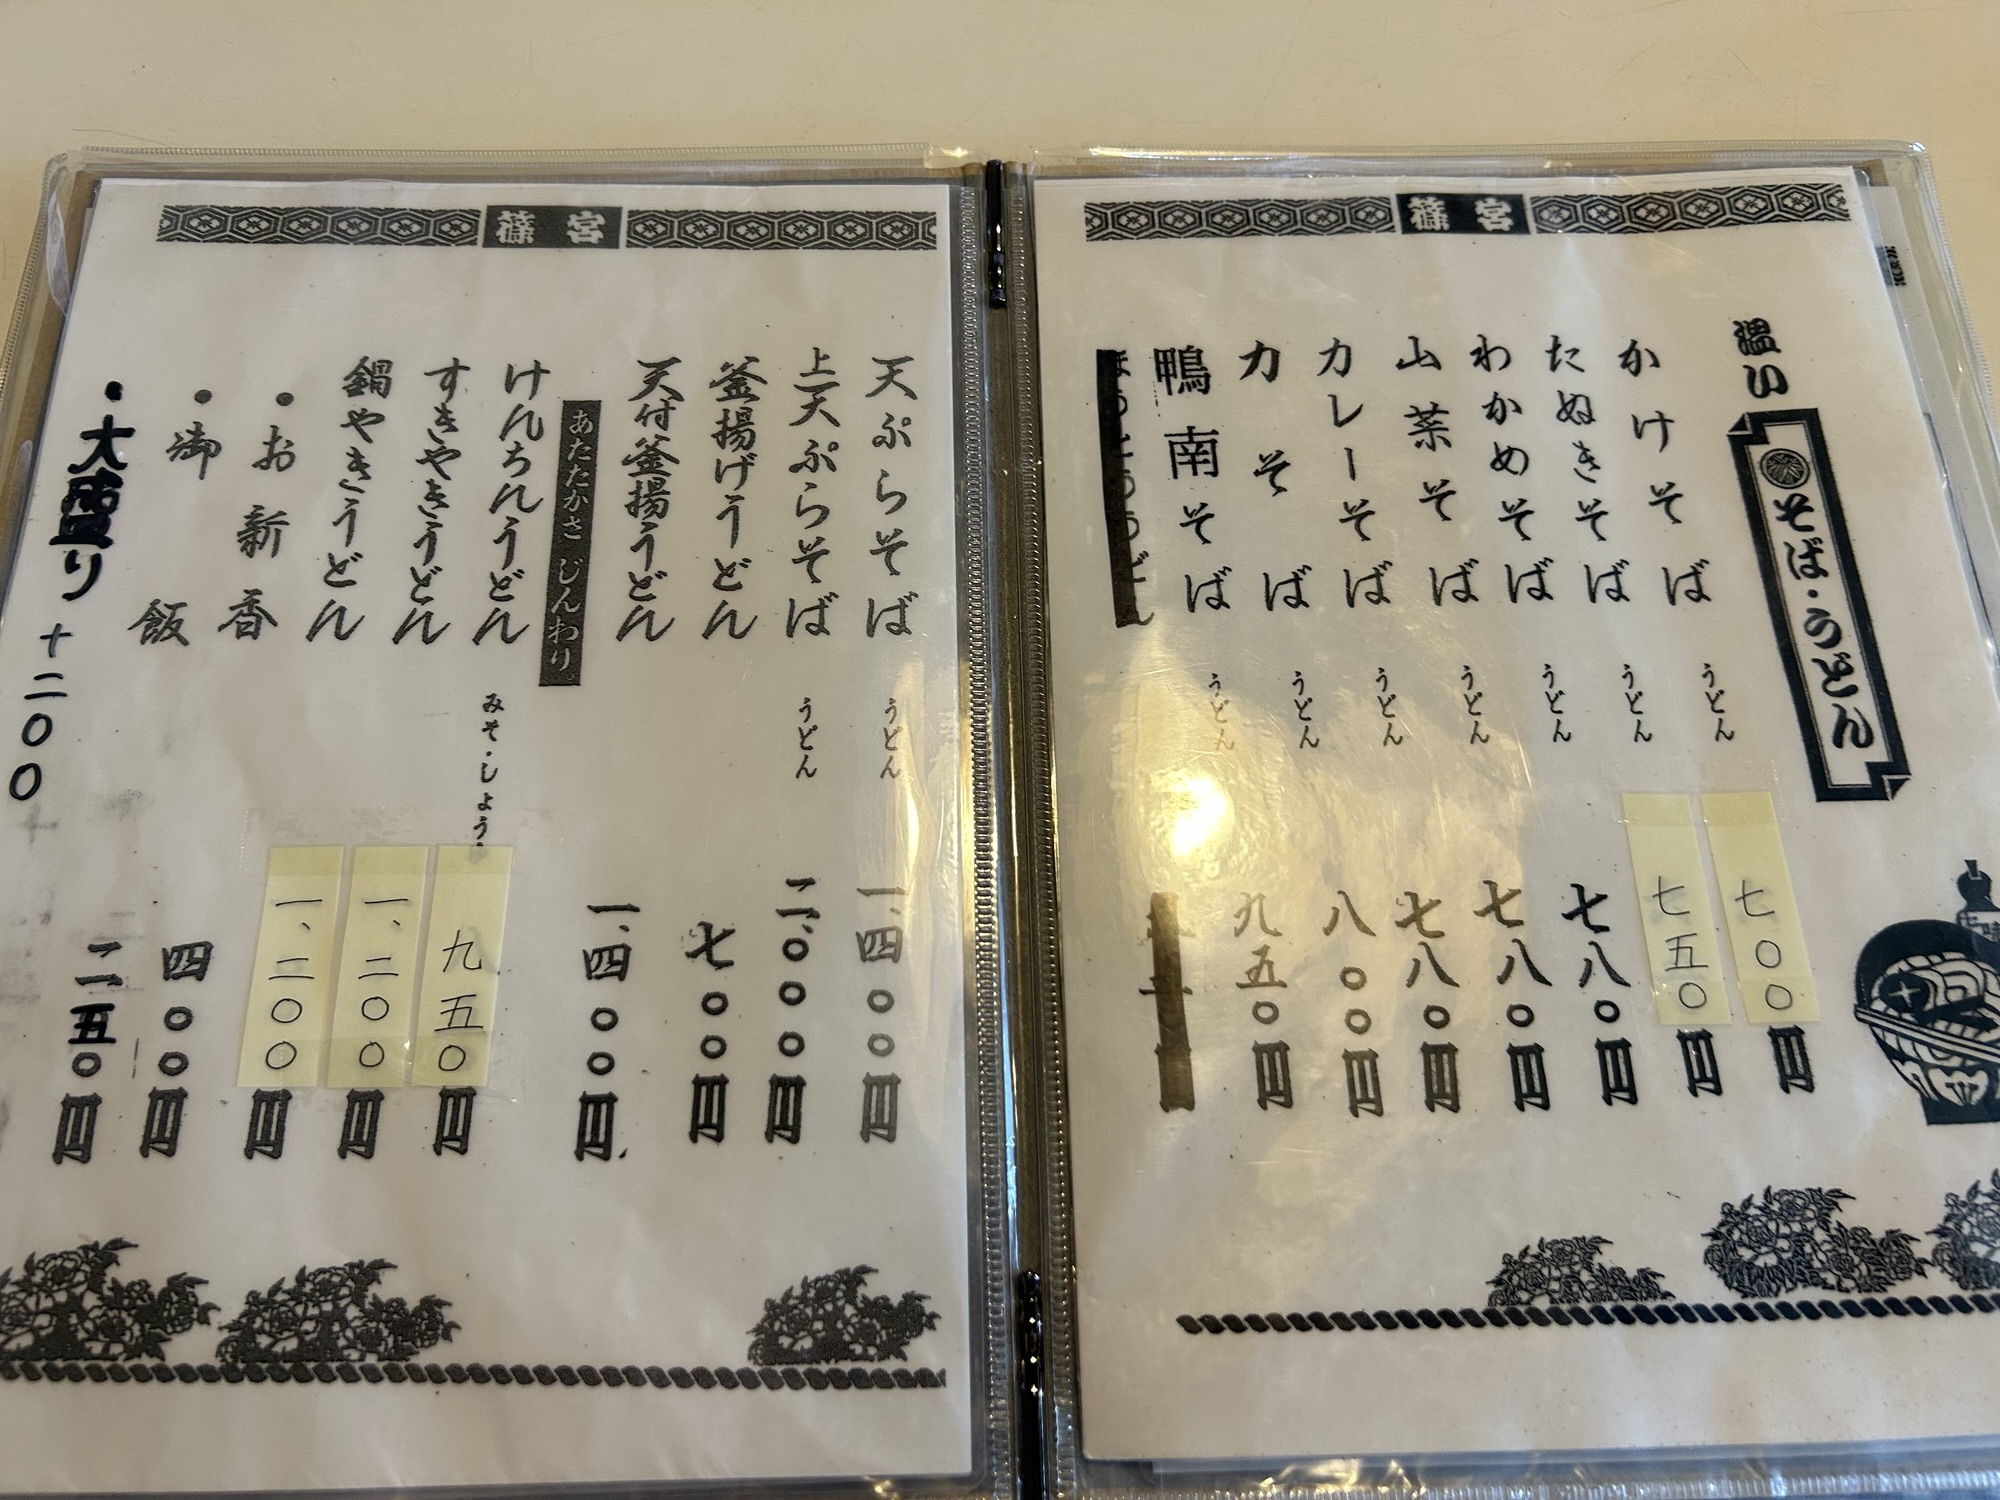 篠宮
温い
そば・うどん
かけそば うどん 七〇〇円
たぬきそば うどん 七五〇円
わかめそば うどん 七八〇円
山菜そば うどん 七八〇円
カレーそば うどん 七八〇円
力そば うどん 八〇〇円
鴨南そば うどん 九五〇円
篠宮
天ぷらそば うどん 一、四〇〇円
上天ぷらそば うどん 二、〇〇〇円
釜揚げうどん 七〇〇円
天付釜揚うどん 一、四〇〇円
あたたかさ じんわり。
けんちんうどん みそ・しょう 九五〇円
すきやきうどん 一、二〇〇円
鍋やきうどん 一、二〇〇円
・お新香 四〇〇円
・御飯 二五〇円
・大盛り +二〇〇